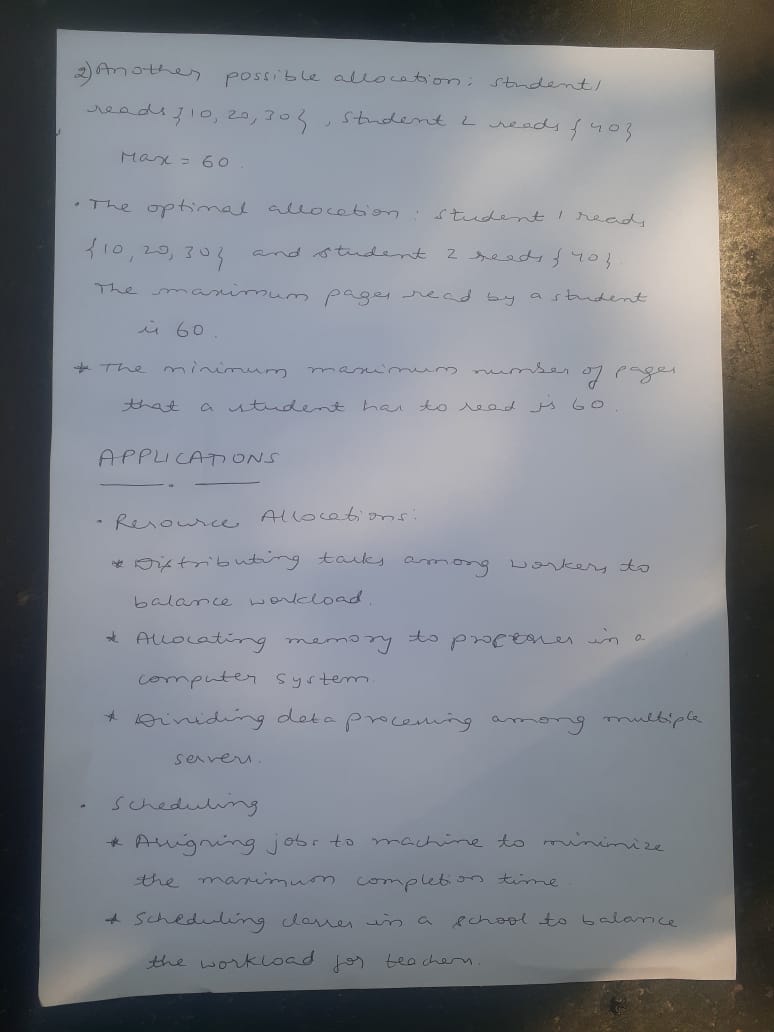 2) Another possible allocation: student 1
reads {10, 20, 30}, student 2 reads {40}
Max = 60.
• The optimal allocation: student 1 reads
{10, 20, 30} and student 2 reads {40}.
The maximum pages read by a student
is 60.
* The minimum maximum number of pages
that a student has to read is 60.
APPLICATIONS
• Resource Allocations:
* Distributing tasks among workers to
balance workload.
* Allocating memory to processes in a
computer system.
* Dividing data processing among multiple
servers.
• Scheduling
* Assigning jobs to machine to minimize
the maximum completion time
* Scheduling classes in a school to balance
the workload for teachers.